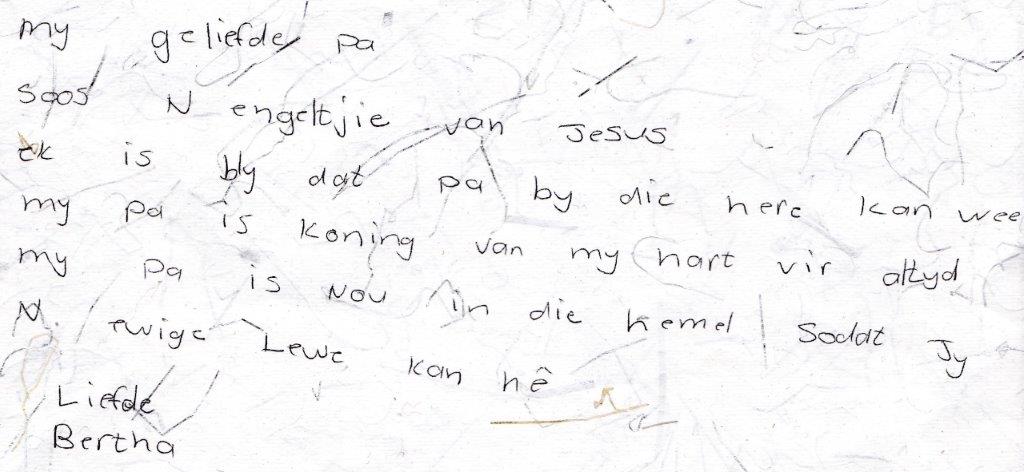 my geliefde pa
Soos N engeltjie van Jesus
ek is bly dat pa by die here kan wee
my pa is koning van my hart vir altyd
my pa is nou in die hemel Sodat Jy
N ewige Lewe kan hê
Liefde
Bertha